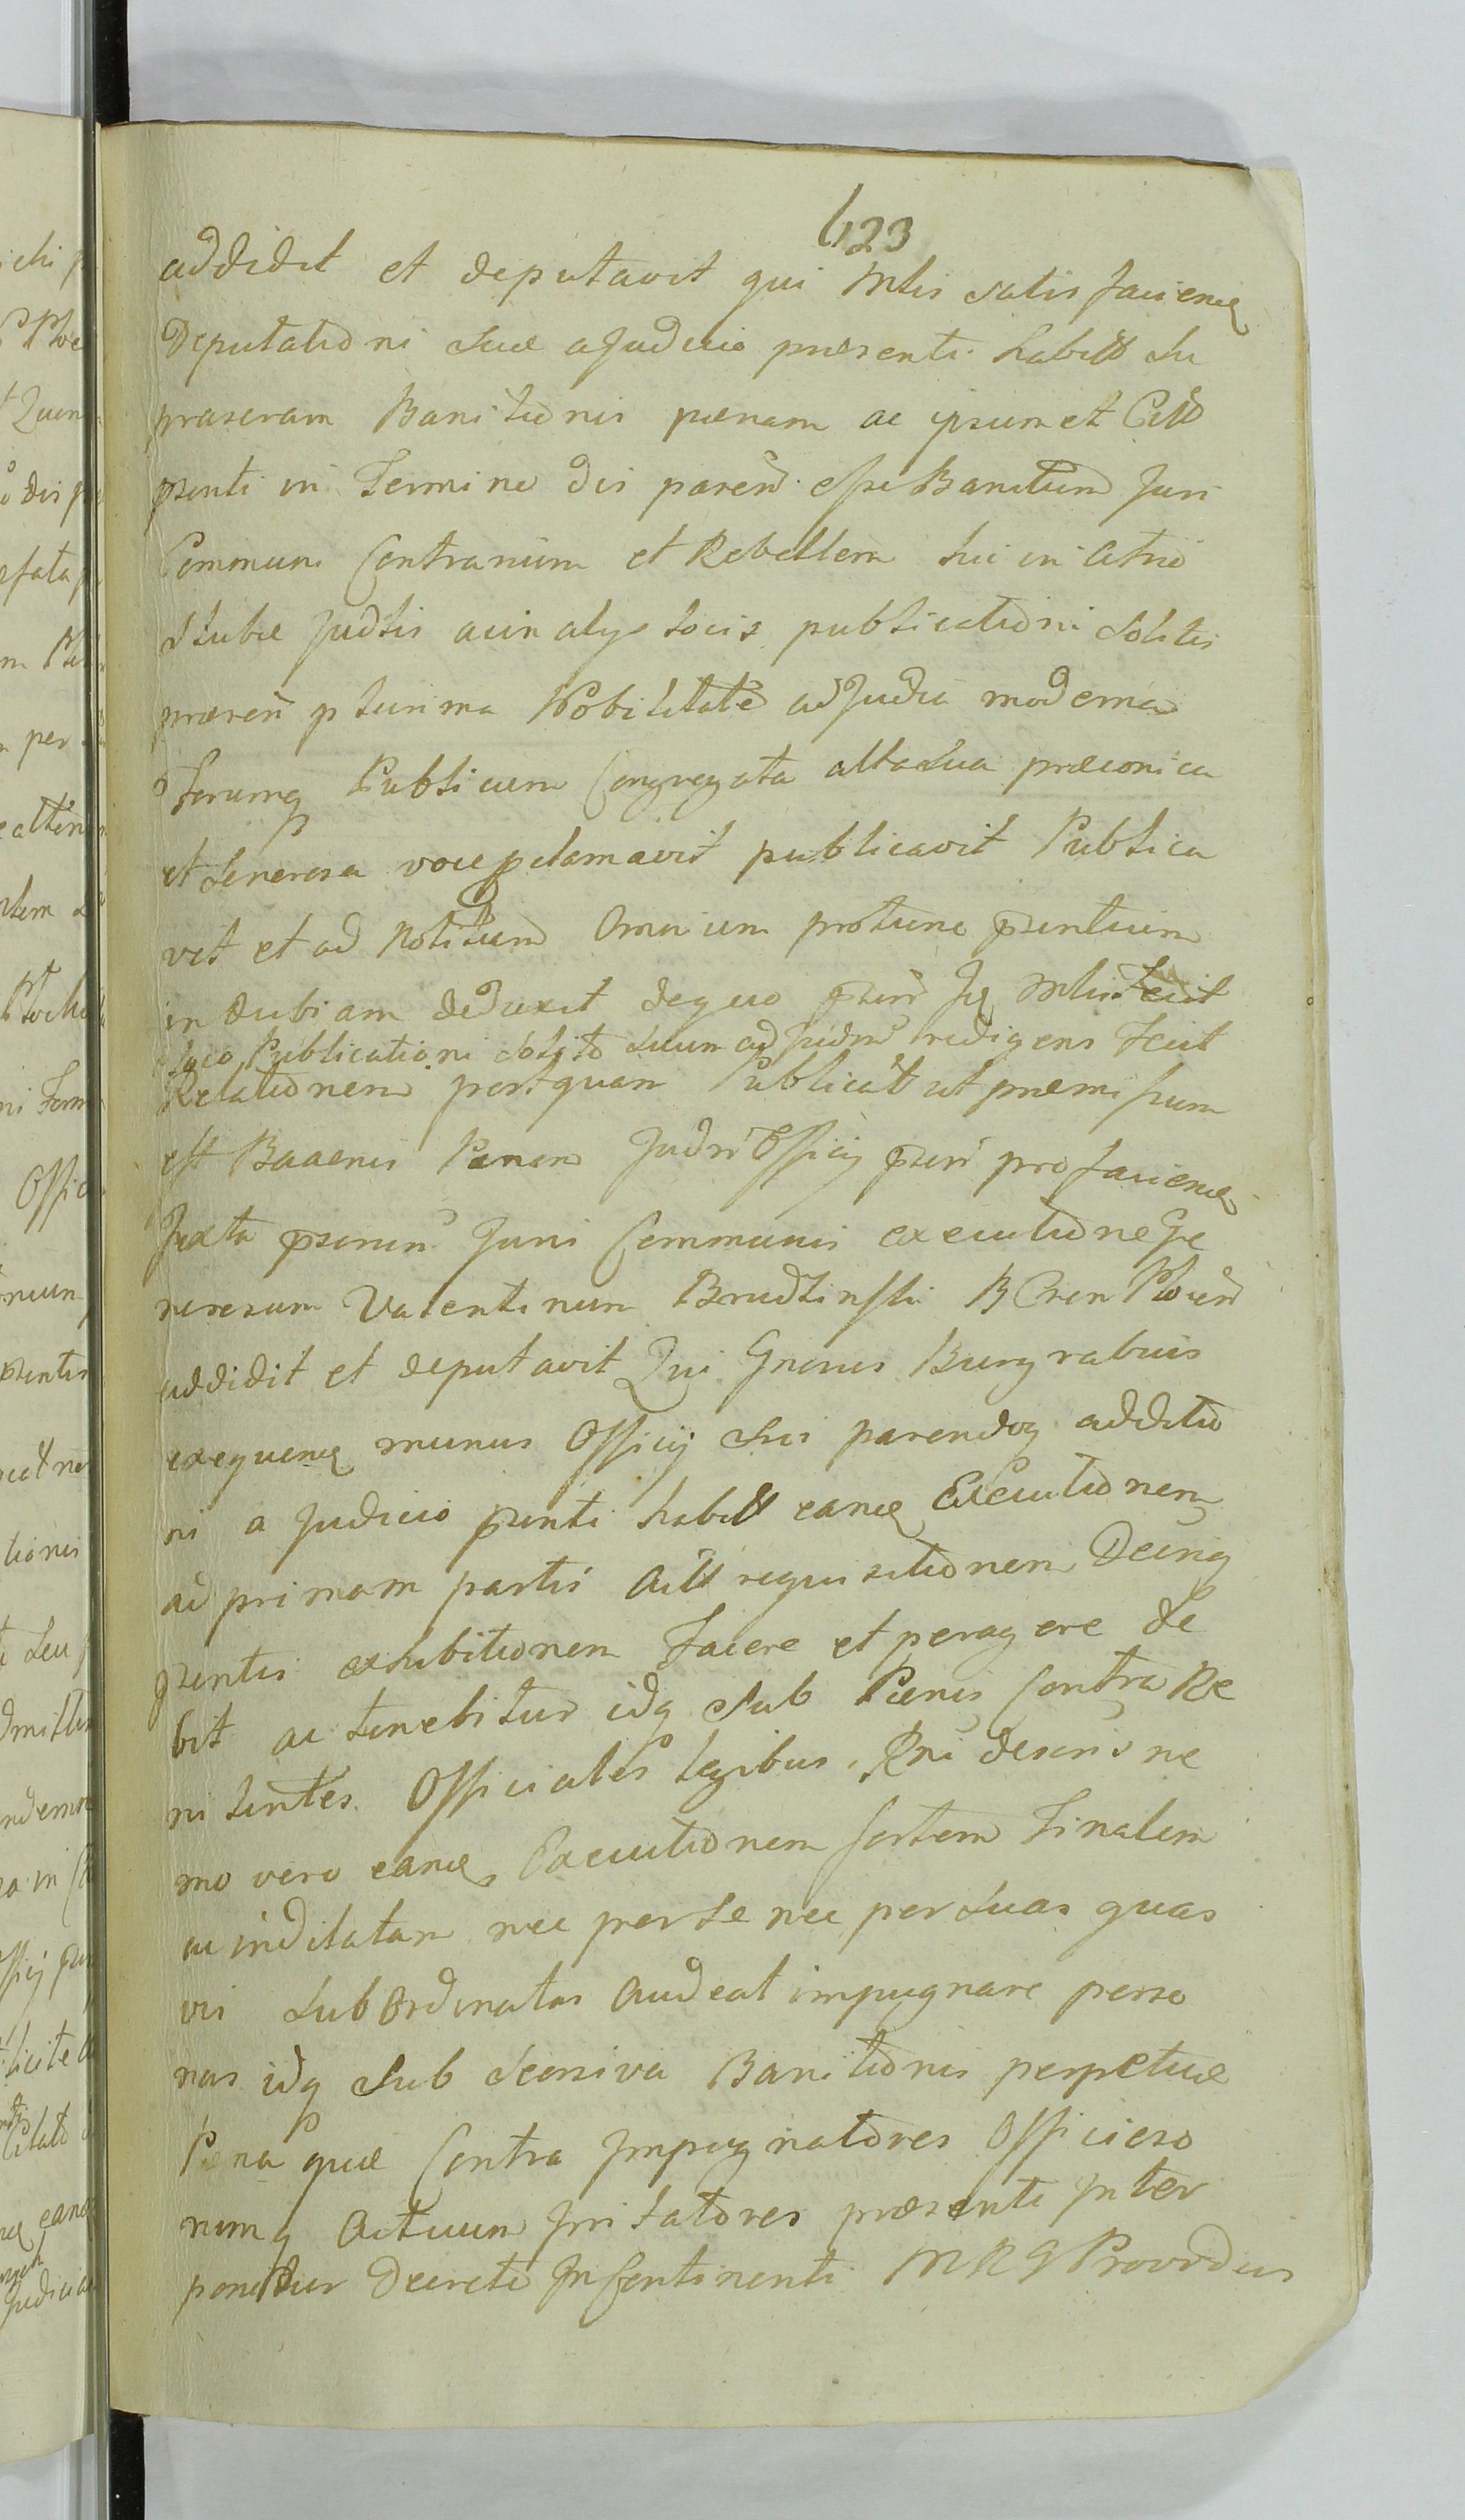 623
addidit et deputavit qui Mlis satis faciens
Deputationi suae a Judicio praesenti habitt Su
praseram Banitionis paenam ac ipsum et Citt
psenti in Termino Dis paren esse Banitum Juri
Communi Contrarium et Rebellem hic in Atrio
Stubae Judlis ac in alys locis publicationi solitis
praesen plurima Nobilitate ad Judicia moderna
Forumq Publicum Congregata alta sua praeconica
et Generosa voce pclamavit publicavit Publica
vit et ad Notitiam Omnium protunc psentium
indubiam deduxit de quo psen Jq Mlis
loco Publicationi Solito suum ad Judm redigens fecit
Relationem postquam Publicatt ut praemissum
est Bannis Paenam Judm Officij psen pro faciend
Juxta pscrien Juris Communis executione Ge
nerosum Valentinum Brudlinski BCren Plocen
addidit et deputavit Qui Gnosus Burgrabius
exequens munus Officij Sui parendoq additio
ni a Judicio psenti habitt eanq Executionem
ad primam partis Actt requisitionem Decriq
psentis exhibitionem facere et peragere de
bit ac tenebitur idq sub Paenis Contra Re
nitentes Officiales legibus Rni descrip ne
mo vero eanq Executionem sortem Finalem
ac inditatam nec per se nec per suas quas
vis subordinatas audeat impugnare perso
nas idq sub decisiva Banitionis perpetuae
Paena quae Contra Impugnatores Officioso
rumq Actuum Irritatores praesenti Inter
ponetur Decreto In Continenti MRG Providus